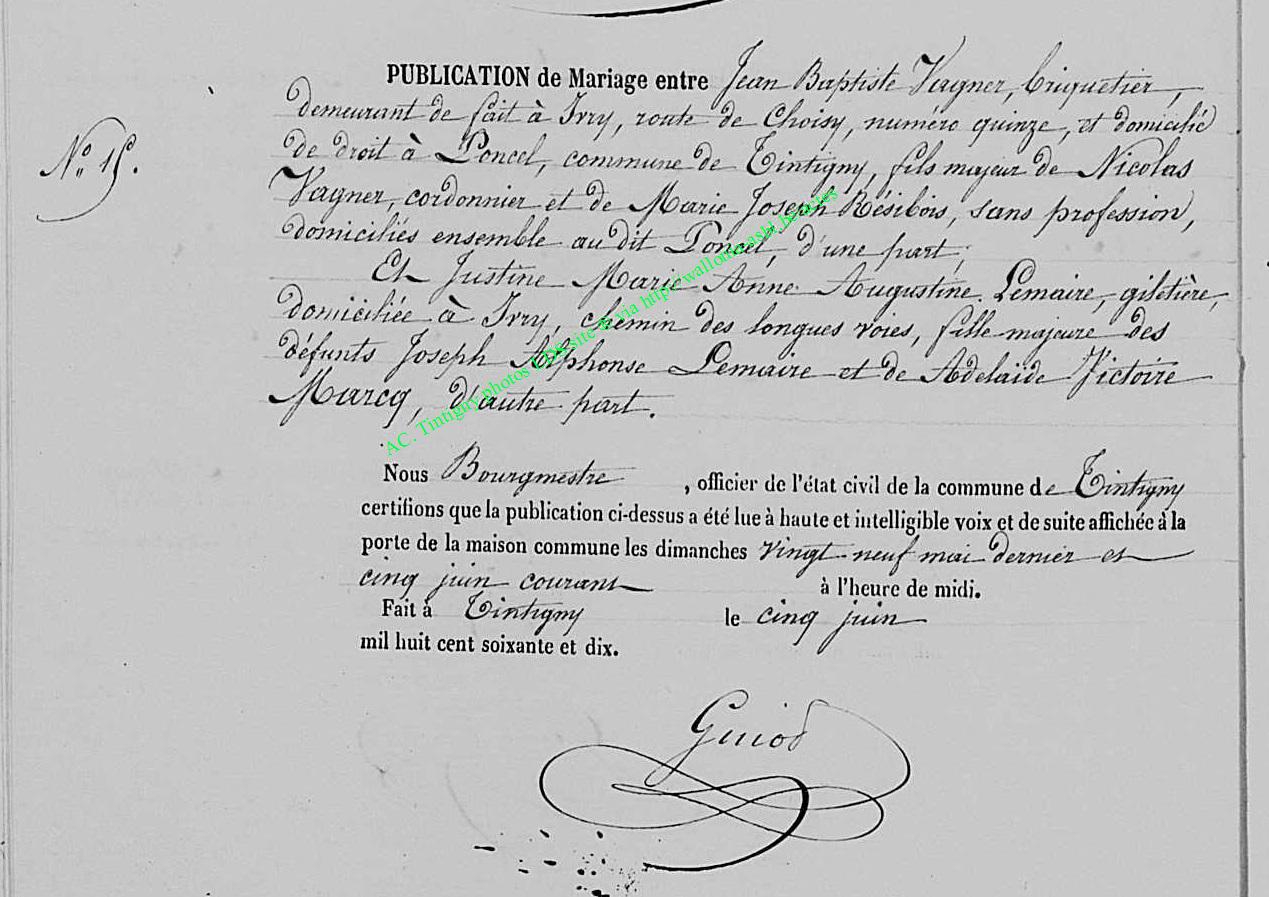 N° 15.
PUBLICATION de Mariage entre Jean Baptiste Vagner, briquetier,
demeurant de fait à Ivry, route de Choisy, numéro quinze, et domicilié
de droit à Poncel, commune de Tintigny, fils majeur de Nicolas
Vagner, cordonnier et de Marie Joseph Résibois, sans profession,
domiciliés ensemble au dit Poncel, d'une part,
Et Justine Marie Anne Augustine Lemaire, giletière,
domiciliée à Ivry, chemin des longues voies, fille majeure des
défunts Joseph Alphonse Lemaire et de Adelaïde Victoire
Marcq, d'autre part.
Nous Bourgmestre, officier de l'état civil de la commune de Tintigny
certifions que la publication ci-dessus a été lue à haute et intelligible voix et de suite affichée à la
porte de la maison commune les dimanches vingt neuf mai dernier et
cinq juin courant à l'heure de midi.
Fait à Tintigny le cinq juin
mil huit cent soixante et dix.
Guiod
AC. Tintigny photos via http://wallonia.asbl.be